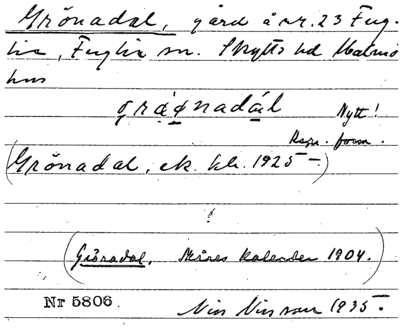 Grönadal, gård å nr. 23 Fug-
lie, Fuglie sn. Skytts hd Malmö
hus
Nytt!
Regn. form.
(Grönadal, ek. kh. 1925 –)
(Grönadal. Skånes Kalender 1904.)
Nr 5806.
Nils Nilsson 1935.